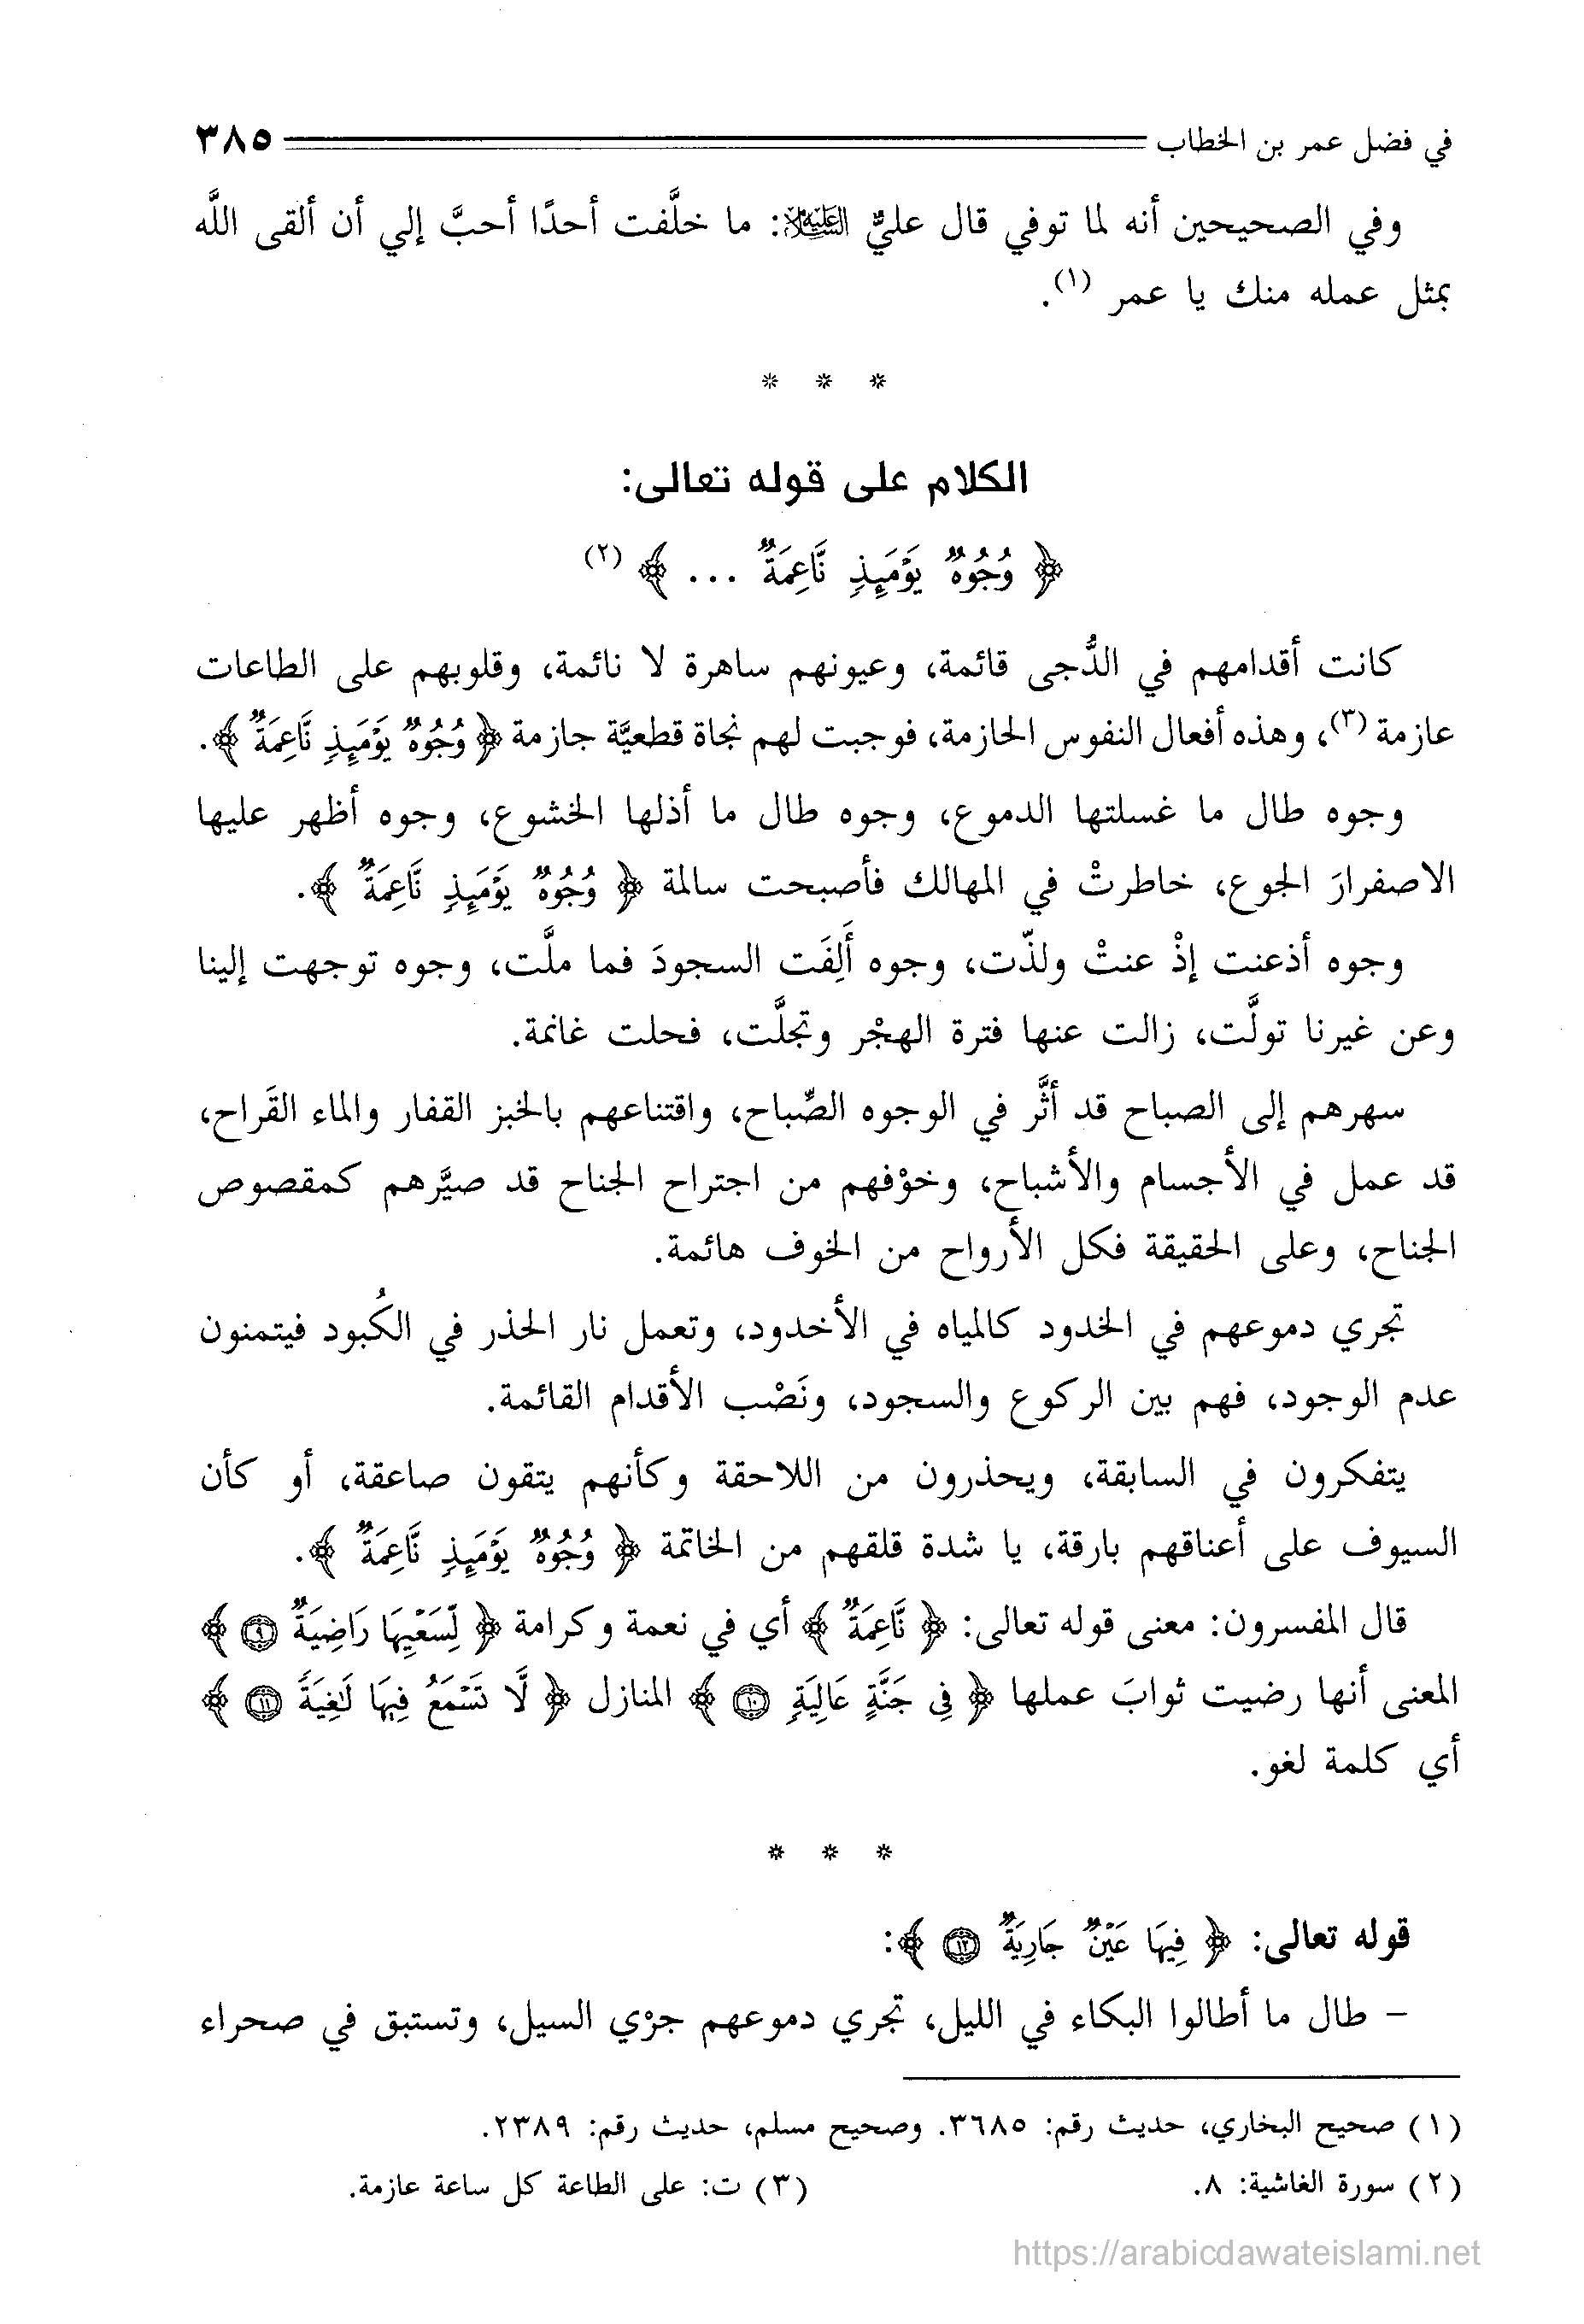 في فضل عمر بن الخطاب ٣٨٥
وفي الصحيحين أنه لما توفي قال عليٌّ عليه السلام: ما خلَّفت أحدًا أحبَّ إلي أن ألقى اللَّه
بمثل عمله منك يا عمر (١).
* * *
الكلام على قوله تعالى:
﴿ وُجُوهٌ يَوْمَئِذٍ نَّاعِمَةٌ ... ﴾ (٢)
كانت أقدامهم في الدُّجى قائمة، وعيونهم ساهرة لا نائمة، وقلوبهم على الطاعات
عازمة (٣)، وهذه أفعال النفوس الحازمة، فوجبت لهم نجاة قطعيَّة جازمة ﴿ وُجُوهٌ يَوْمَئِذٍ نَّاعِمَةٌ ﴾.
وجوه طال ما غسلتها الدموع، وجوه طال ما أذلها الخشوع، وجوه أظهر عليها
الاصفرارَ الجوع، خاطرتْ في المهالك فأصبحت سالمة ﴿ وُجُوهٌ يَوْمَئِذٍ نَّاعِمَةٌ ﴾.
وجوه أذعنت إذْ عنتْ ولذّت، وجوه أَلِفَت السجودَ فما ملَّت، وجوه توجهت إلينا
وعن غيرنا تولَّت، زالت عنها فترة الهجْر وتجلَّت، فحلت غانمة.
سهرهم إلى الصباح قد أثَّر في الوجوه الصِّباح، واقتناعهم بالخبز القفار والماء القَراح،
قد عمل في الأجسام والأشباح، وخوْفهم من اجتراح الجناح قد صيَّرهم كمقصوص
الجناح، وعلى الحقيقة فكل الأرواح من الخوف هائمة.
تجري دموعهم في الخدود كالمياه في الأخدود، وتعمل نار الحذر في الكُبود فيتمنون
عدم الوجود، فهم بين الركوع والسجود، ونَصْب الأقدام القائمة.
يتفكرون في السابقة، ويحذرون من اللاحقة وكأنهم يتقون صاعقة، أو كأن
السيوف على أعناقهم بارقة، يا شدة قلقهم من الخاتمة ﴿ وُجُوهٌ يَوْمَئِذٍ نَّاعِمَةٌ ﴾.
قال المفسرون: معنى قوله تعالى: ﴿ نَّاعِمَةٌ ﴾ أي في نعمة وكرامة ﴿ لِّسَعْيِهَا رَاضِيَةٌ ٩ ﴾
المعنى أنها رضيت ثوابَ عملها ﴿ فِي جَنَّةٍ عَالِيَةٍ ١٠ ﴾ المنازل ﴿ لَّا تَسْمَعُ فِيهَا لَٰغِيَةً ١١ ﴾
أي كلمة لغو.
* * *
قوله تعالى: ﴿ فِيهَا عَيْنٌ جَارِيَةٌ ١٢ ﴾:
– طال ما أطالوا البكاء في الليل، تجري دموعهم جرْي السيل، وتستبق في صحراء
(١) صحيح البخاري، حديث رقم: ٣٦٨٥. وصحيح مسلم، حديث رقم: ٢٣٨٩.
(٢) سورة الغاشية: ٨. (٣) ت: على الطاعة كل ساعة عازمة.
https://arabicdawateislami.net